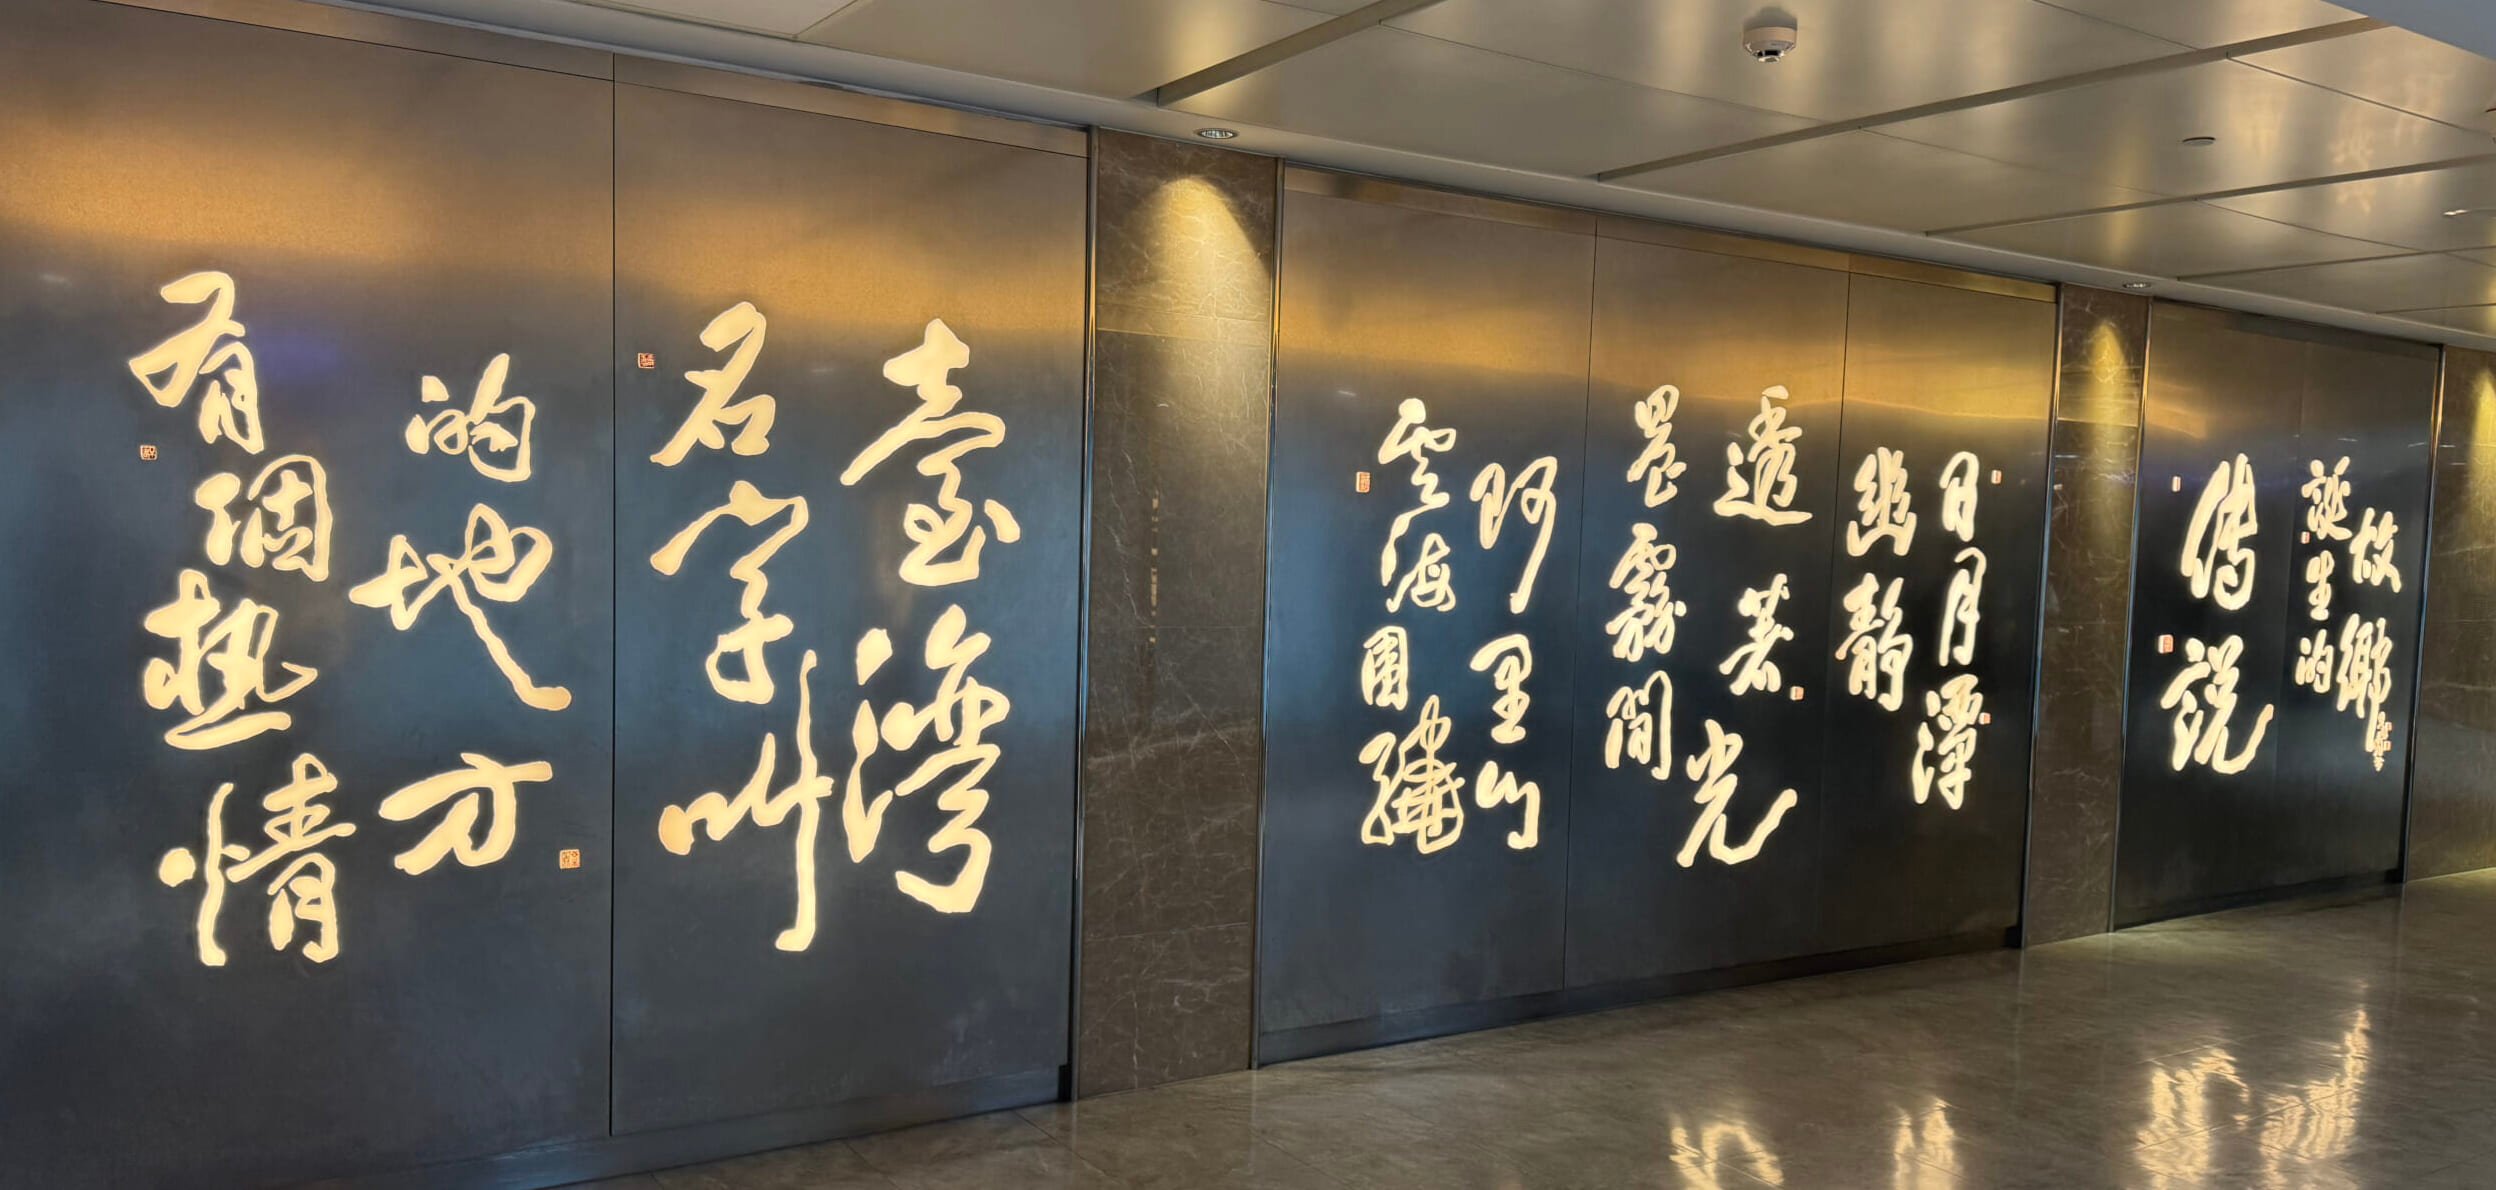 有個熱情
的地方
名字叫
臺灣
雲海圍繞
阿里山
晨霧間
透著光
幽靜
日月潭
傳說
誕生的
故鄉